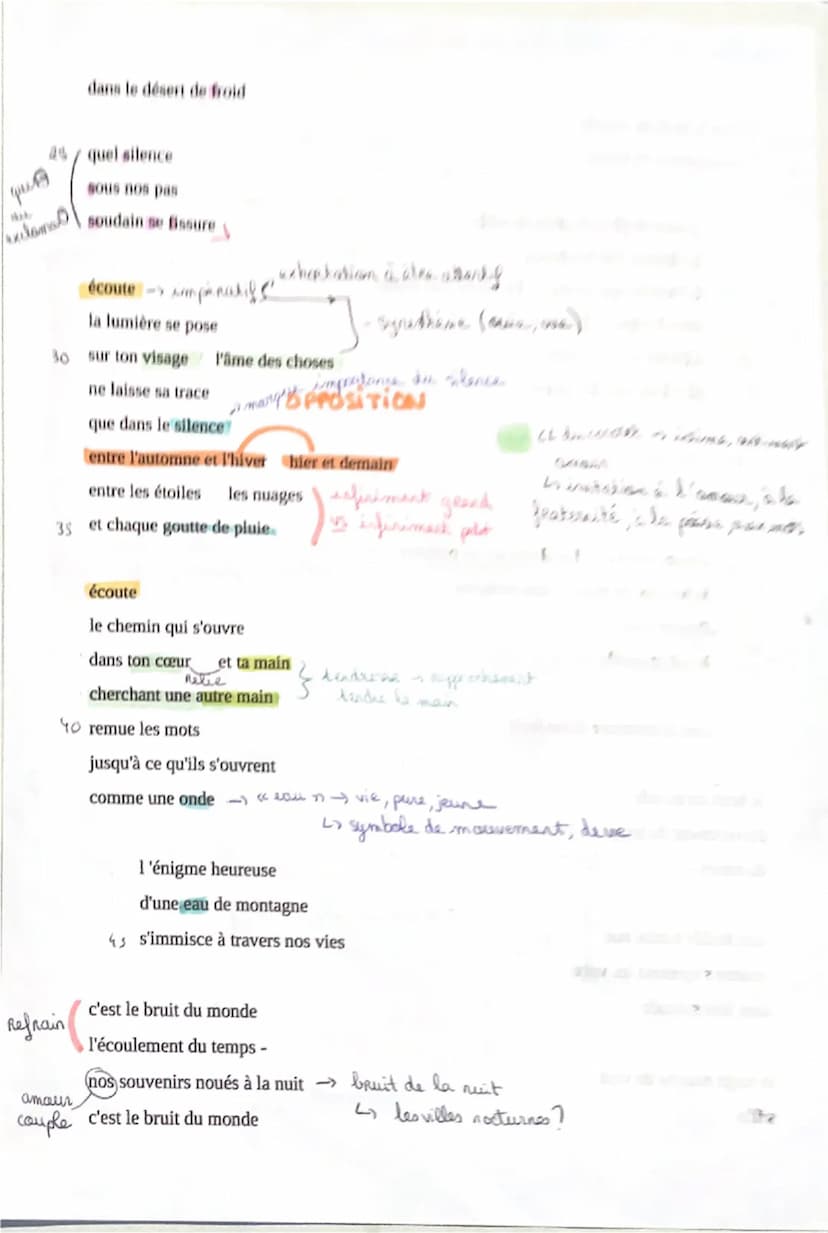 dans le désert de froid
25 quel silence
sous nos pas
soudain se fissure
écoute → impératif exhortation à être attentif
la lumière se pose
30 sur ton visage l'âme des choses
ne laisse sa trace
importance du silence
OPPOSITION
que dans le silence
entre l'automne et l'hiver hier et demain
entre les étoiles les nuages infiniment grand
35 et chaque goutte de pluie. VS infiniment petit
↳ invitation à l'amour, à la
fraternité
écoute
le chemin qui s'ouvre
dans ton cœur et ta main
relie
tendresse → rapprochement
cherchant une autre main
tendre la main
40 remue les mots
jusqu'à ce qu'ils s'ouvrent
comme une onde → « eau » → vie, pure, jeune
↳ symbole de mouvement,
l 'énigme heureuse
d'une eau de montagne
45 s'immisce à travers nos vies
c'est le bruit du monde
Refrain
l'écoulement du temps -
nos souvenirs noués à la nuit → bruit de la nuit
amour
couple c'est le bruit du monde ↳ les villes nocturnes ?